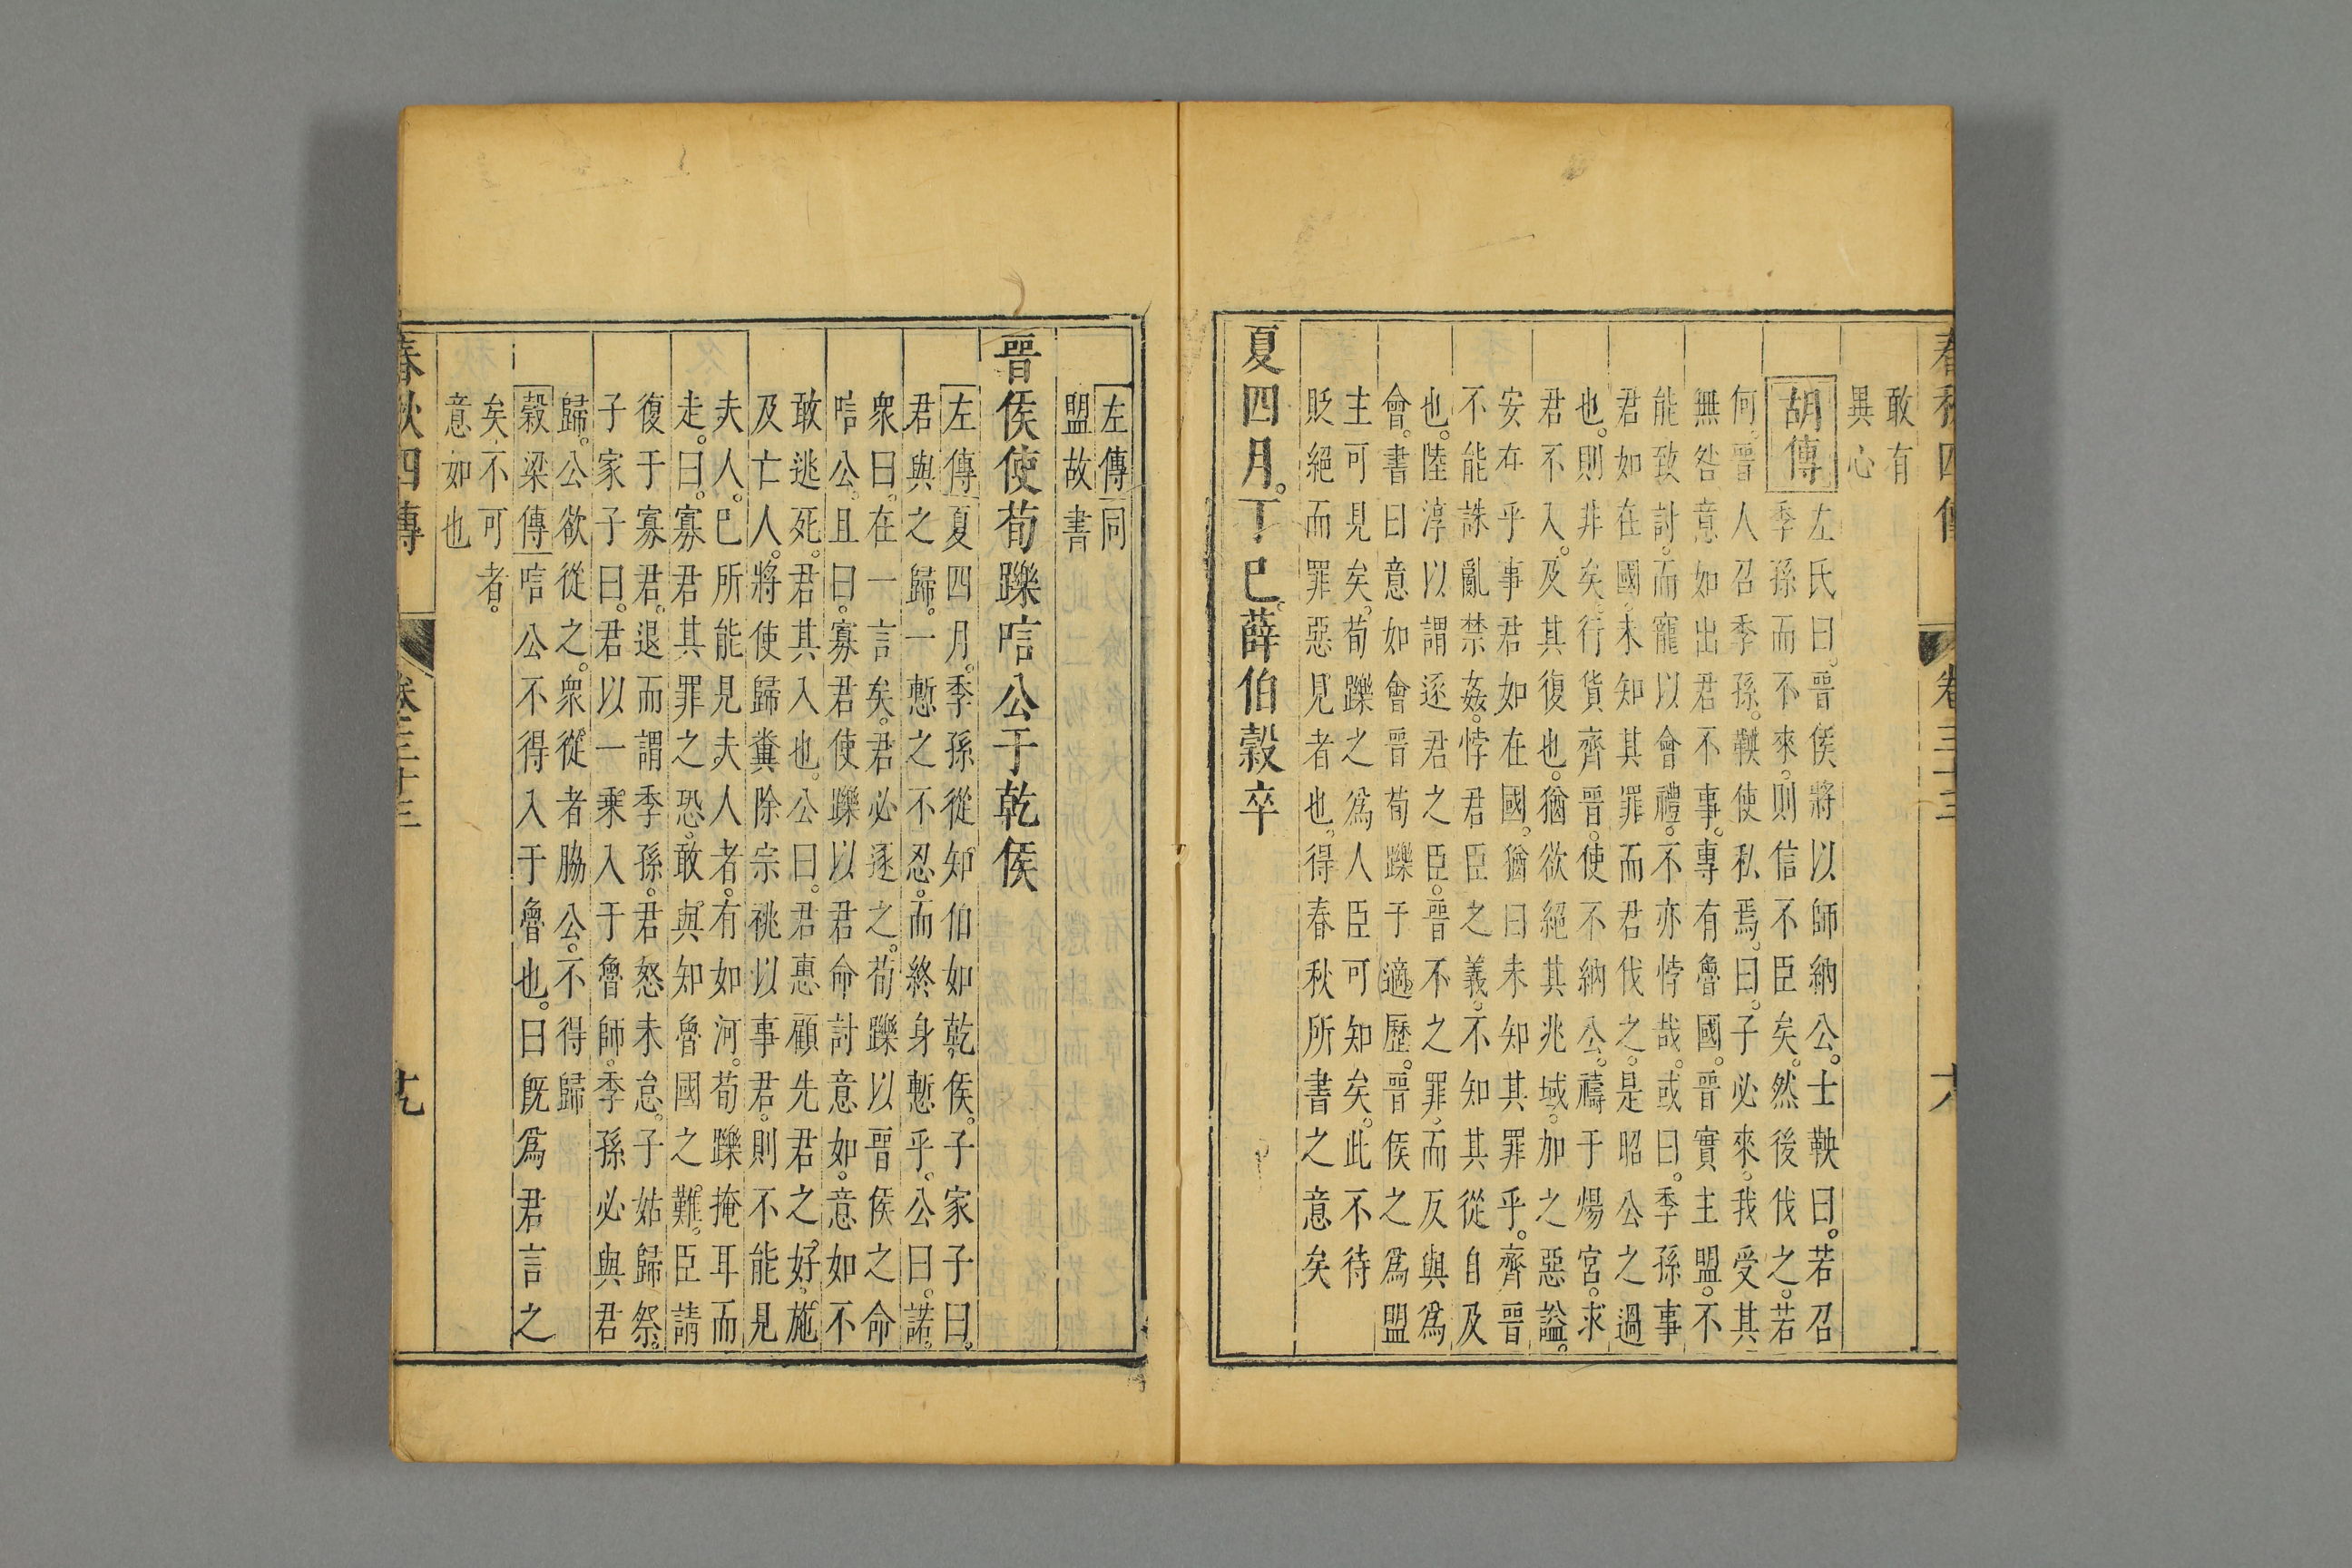 春秋四傳
卷三十三
敢有
異心
胡傳
左氏曰。晉侯將以師納公。士鞅曰。若召
季孫而不來。則信不臣矣。然後伐之。若
何。晉人召季孫。鞅使私焉。曰。子必來。我受其
無咎。意如出君不事。專有魯國。晉實主盟。不
能致討。而寵以會禮。不亦悖哉。或曰。季孫事
君如在國。未知其罪而君伐之。是昭公之過
也。則非矣。行貨齊晉。使不納公。禱于煬宮。求
君不入。及其復也。猶欲絕其兆域。加之惡謚。
安在乎事君如在國。猶曰未知其罪乎。齊晉
不能誅亂禁姦。悖君臣之義。不知其從自及
也。陸淳以謂逐君之臣。晉不之罪。而反與爲
會。書曰意如會晉荀躒于適歷。晉侯之爲盟
主可見矣。荀躒之爲人臣可知矣。此不待
貶絕而罪惡見者也。得春秋所書之意矣
夏四月。丁巳。薛伯穀卒
左傳同
盟故書
晉侯使荀躒唁公于乾侯
左傳夏四月。季孫從知伯如乾侯。子家子曰。
君與之歸。一慙之不忍。而終身慙乎。公曰。諾。
衆曰。在一言矣。君必逐之。荀躒以晉侯之命
唁公。且曰。寡君使躒以君命討意如。意如不
敢逃死。君其入也。公曰。君惠顧先君之好。施
及亡人。將使歸糞除宗祧以事君。則不能見
夫人。巳所能見夫人者。有如河。荀躒掩耳而
走。曰。寡君其罪之恐。敢與知魯國之難。臣請
復于寡君。退而謂季孫。君怒未怠。子姑歸祭。
子家子曰。君以一乘入于魯師。季孫必與君
歸。公欲從之。衆從者脇公。不得歸
穀梁傳唁公不得入于魯也。曰旣爲君言之
矣。不可者。
意如也
春秋四傳
卷三十三